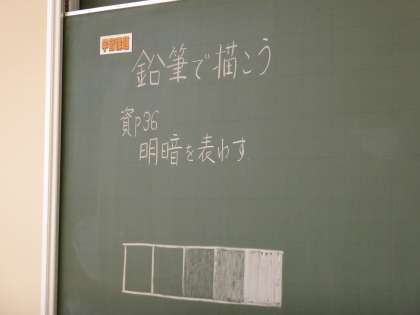 鉛筆で描こう
資p36
明暗を表わす